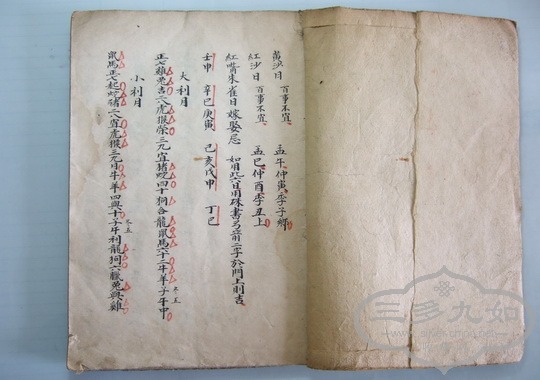 黃沙日 百事不宜 孟午仲寅季子鄉
紅沙日 百事不宜 孟巳仲酉季丑上
紅嘴朱雀日嫁娶忌 如用此六日用硃書弓箭二字於門上則吉
壬申 辛巳 庚寅 己亥 戊申 丁巳
大利月
正七雞兔吉二八虎猴榮三九宜豬蛇四十狗合龍鼠馬六十二牛羊子午申
小利月
鼠馬正七起蛇豬二八宜虎猴三九日牛羊四與十子牛利龍狗六臘兔與雞
三多九如